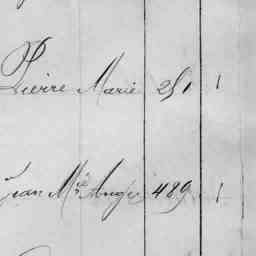 Pierre Marie 251 1
Jean Mie Ange 489 1